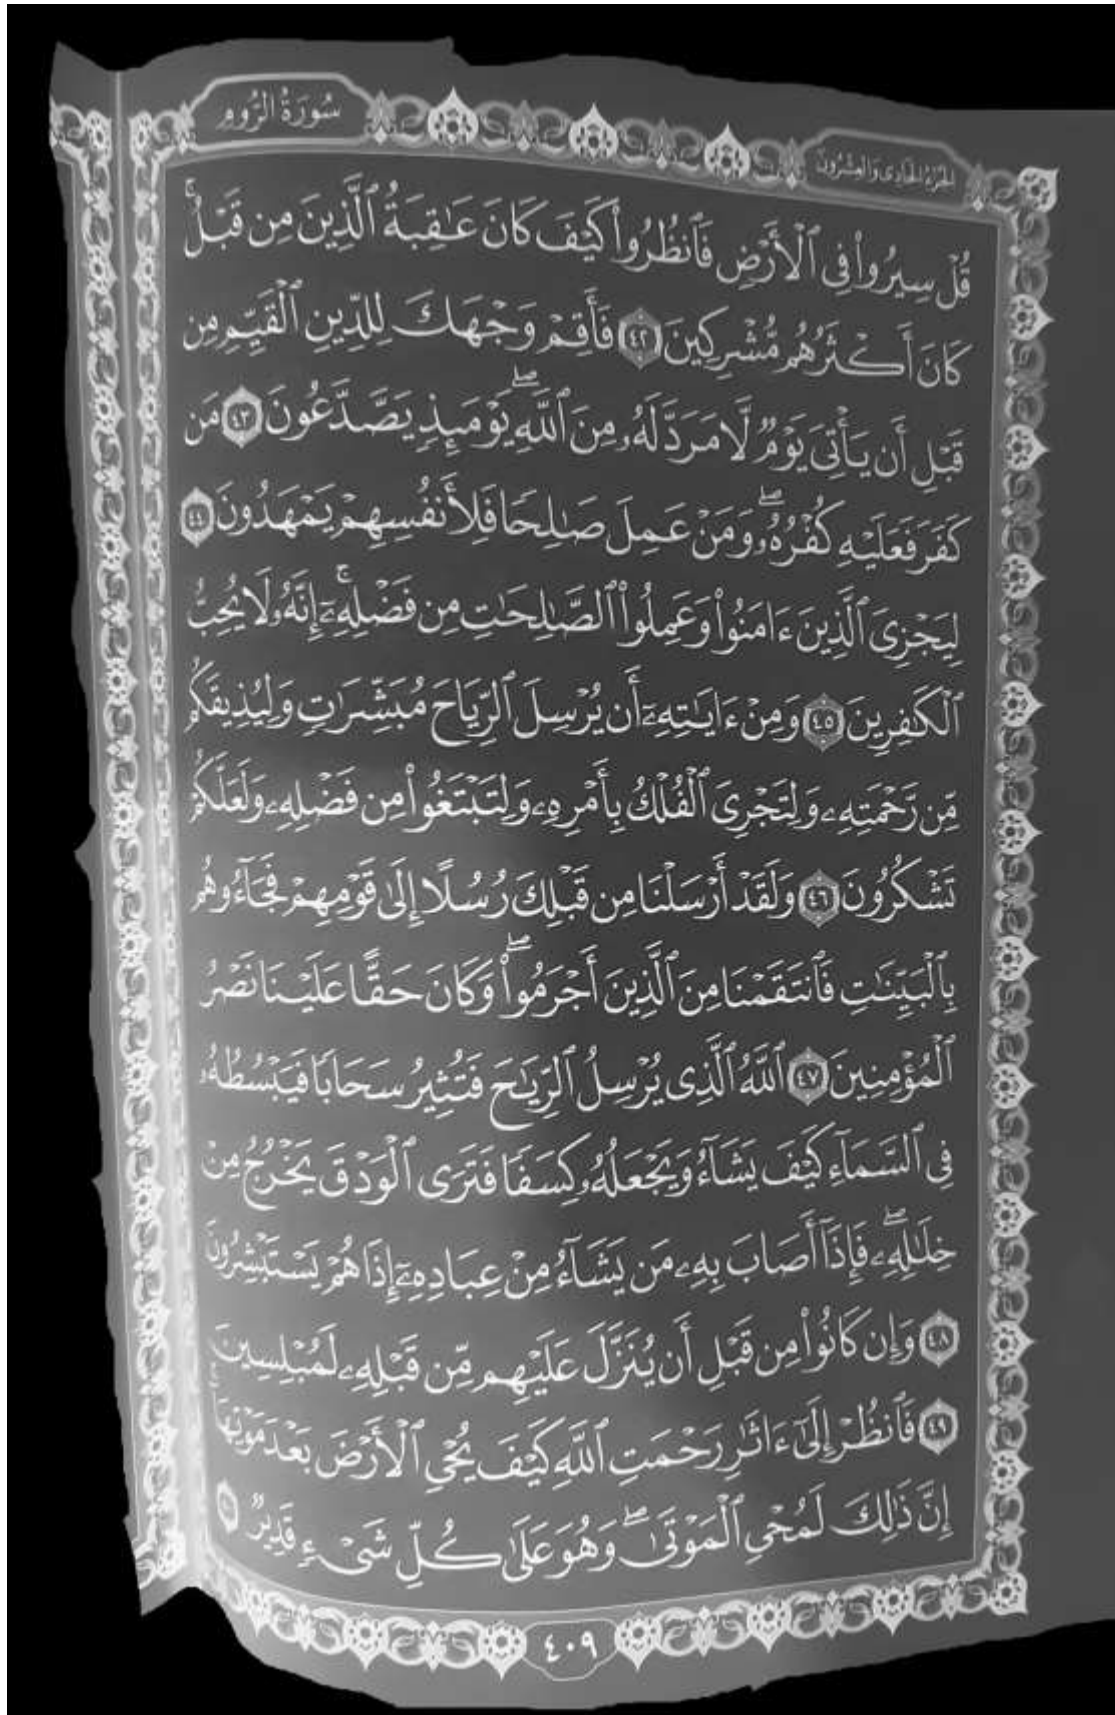 الجزء الحادي والعشرون
سُورَةُ الرُّومِ
قُلْ سِيرُوا۟ فِى ٱلْأَرْضِ فَٱنظُرُوا۟ كَيْفَ كَانَ عَـٰقِبَةُ ٱلَّذِينَ مِن قَبْلُ ۚ
كَانَ أَكْثَرُهُم مُّشْرِكِينَ ٤٢ فَأَقِمْ وَجْهَكَ لِلدِّينِ ٱلْقَيِّمِ مِن
قَبْلِ أَن يَأْتِىَ يَوْمٌ لَّا مَرَدَّ لَهُۥ مِنَ ٱللَّهِ ۖ يَوْمَئِذٍ يَصَّدَّعُونَ ٤٣ مَن
كَفَرَ فَعَلَيْهِ كُفْرُهُۥ ۖ وَمَنْ عَمِلَ صَـٰلِحًا فَلِأَنفُسِهِمْ يَمْهَدُونَ ٤٤
لِيَجْزِىَ ٱلَّذِينَ ءَامَنُوا۟ وَعَمِلُوا۟ ٱلصَّـٰلِحَـٰتِ مِن فَضْلِهِۦٓ ۚ إِنَّهُۥ لَا يُحِبُّ
ٱلْكَـٰفِرِينَ ٤٥ وَمِنْ ءَايَـٰتِهِۦٓ أَن يُرْسِلَ ٱلرِّيَاحَ مُبَشِّرَٰتٍ وَلِيُذِيقَكُم
مِّن رَّحْمَتِهِۦ وَلِتَجْرِىَ ٱلْفُلْكُ بِأَمْرِهِۦ وَلِتَبْتَغُوا۟ مِن فَضْلِهِۦ وَلَعَلَّكُمْ
تَشْكُرُونَ ٤٦ وَلَقَدْ أَرْسَلْنَا مِن قَبْلِكَ رُسُلًا إِلَىٰ قَوْمِهِمْ فَجَآءُوهُم
بِٱلْبَيِّنَـٰتِ فَٱنتَقَمْنَا مِنَ ٱلَّذِينَ أَجْرَمُوا۟ ۖ وَكَانَ حَقًّا عَلَيْنَا نَصْرُ
ٱلْمُؤْمِنِينَ ٤٧ ٱللَّهُ ٱلَّذِى يُرْسِلُ ٱلرِّيَـٰحَ فَتُثِيرُ سَحَابًا فَيَبْسُطُهُۥ
فِى ٱلسَّمَآءِ كَيْفَ يَشَآءُ وَيَجْعَلُهُۥ كِسَفًا فَتَرَى ٱلْوَدْقَ يَخْرُجُ مِنْ
خِلَـٰلِهِۦ ۖ فَإِذَآ أَصَابَ بِهِۦ مَن يَشَآءُ مِنْ عِبَادِهِۦٓ إِذَا هُمْ يَسْتَبْشِرُونَ
٤٨ وَإِن كَانُوا۟ مِن قَبْلِ أَن يُنَزَّلَ عَلَيْهِم مِّن قَبْلِهِۦ لَمُبْلِسِينَ
٤٩ فَٱنظُرْ إِلَىٰٓ ءَاثَـٰرِ رَحْمَتِ ٱللَّهِ كَيْفَ يُحْىِ ٱلْأَرْضَ بَعْدَ مَوْتِهَآ ۚ
إِنَّ ذَٰلِكَ لَمُحْىِ ٱلْمَوْتَىٰ ۖ وَهُوَ عَلَىٰ كُلِّ شَىْءٍ قَدِيرٌ ٥٠
٤٠٩